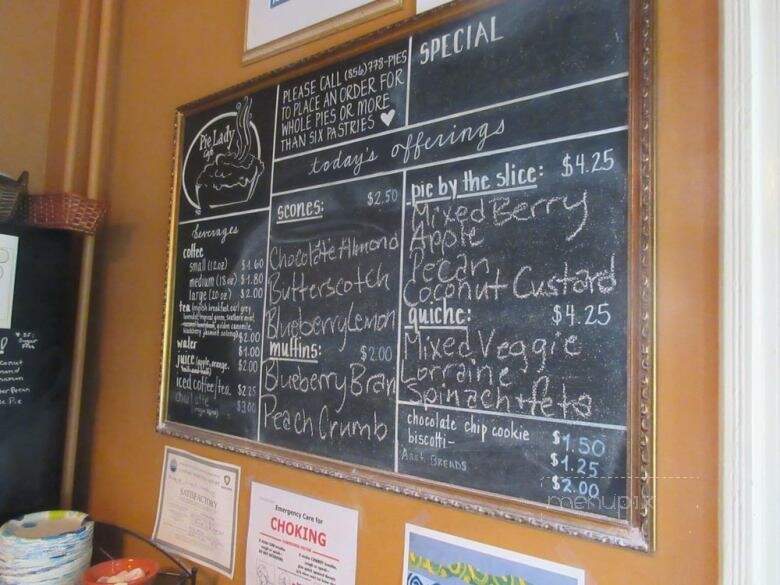 Pie Lady
Cafe
PLEASE CALL (856)778-PIES
TO PLACE AN ORDER FOR
WHOLE PIES OR MORE
THAN SIX PASTRIES
SPECIAL
today's offerings
beverages
coffee
small (12 oz) $1.60
medium (16 oz) $1.80
large (20 oz) $2.00
tea (english breakfast, earl grey
$2.00
water $1.00
juice (apple, orange, $2.00
iced coffee/tea $2.25
chai latte $3.00
scones: $2.50
Chocolate Almond
Butterscotch
Blueberry Lemon
muffins: $2.00
Blueberry Bran
Peach Crumb
pie by the slice: $4.25
Mixed Berry
Apple
Pecan
Coconut Custard
quiche: $4.25
Mixed Veggie
Lorraine
Spinach + feta
chocolate chip cookie $1.50
biscotti- $1.25
BREADS $2.00
SATISFACTORY
Emergency Care for
CHOKING
menupix